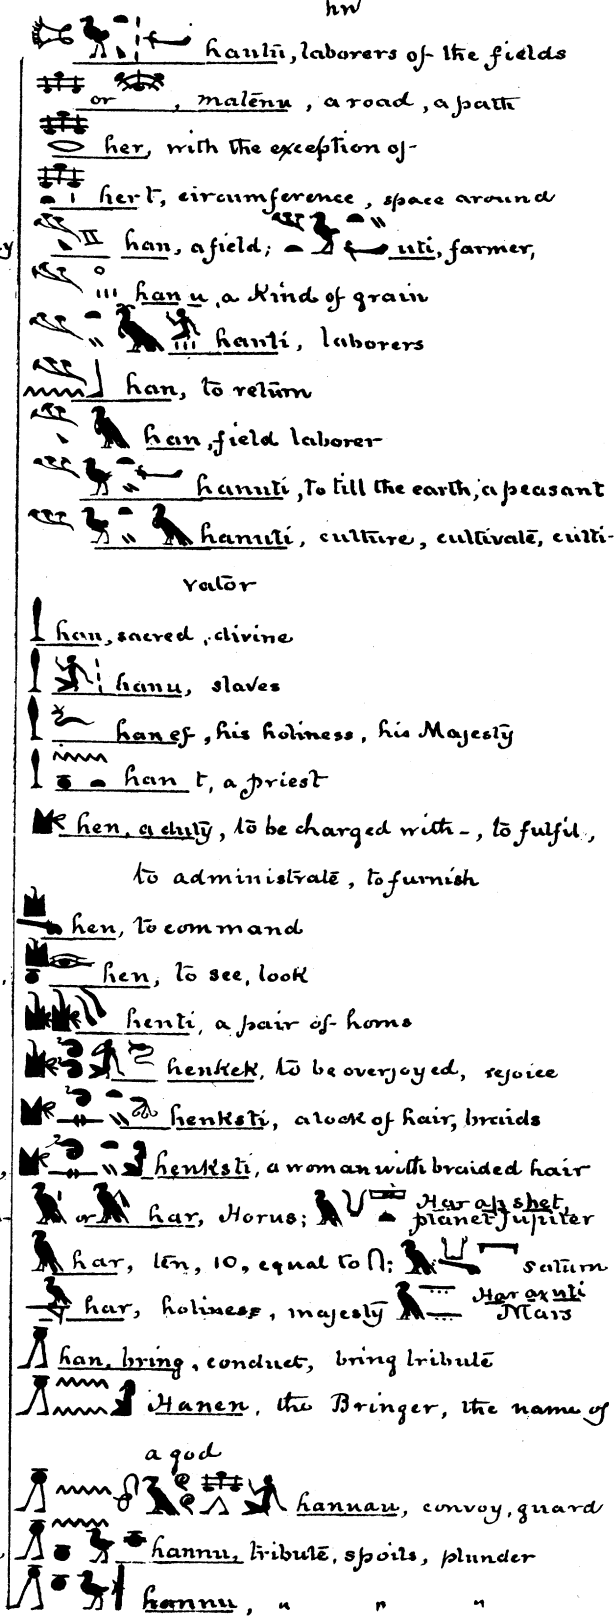 hn
hautu, laborers of the fields
or , matenu, a road, a path
her, with the exception of-
her t, circumference, space around
han, a field; uti, farmer,
han u, a kind of grain
hanti, laborers
han, to return
han, field laborer
hanuti, to till the earth, a peasant
hanuti, culture, cultivate, culti-
vator
han, sacred, divine
hanu, slaves
han ef, his holiness, his Majesty
han t, a priest
hen, a duty, to be charged with-, to fulfil,
to administrate, to furnish
hen, to command
hen, to see, look
henti, a pair of horns
henkek, to be overjoyed, rejoice
henksti, a lock of hair, braids
henksti, a woman with braided hair
or har, Horus; Har ap shet, planet Jupiter
har, ten, 10, equal to ∩; saturn
har, holiness, majesty Har axuti Mars
han, bring, conduct, bring tribute
Hanen, the Bringer, the name of
a god
hanuau, convoy, guard
hannu, tribute, spoils, plunder
hannu, " " "